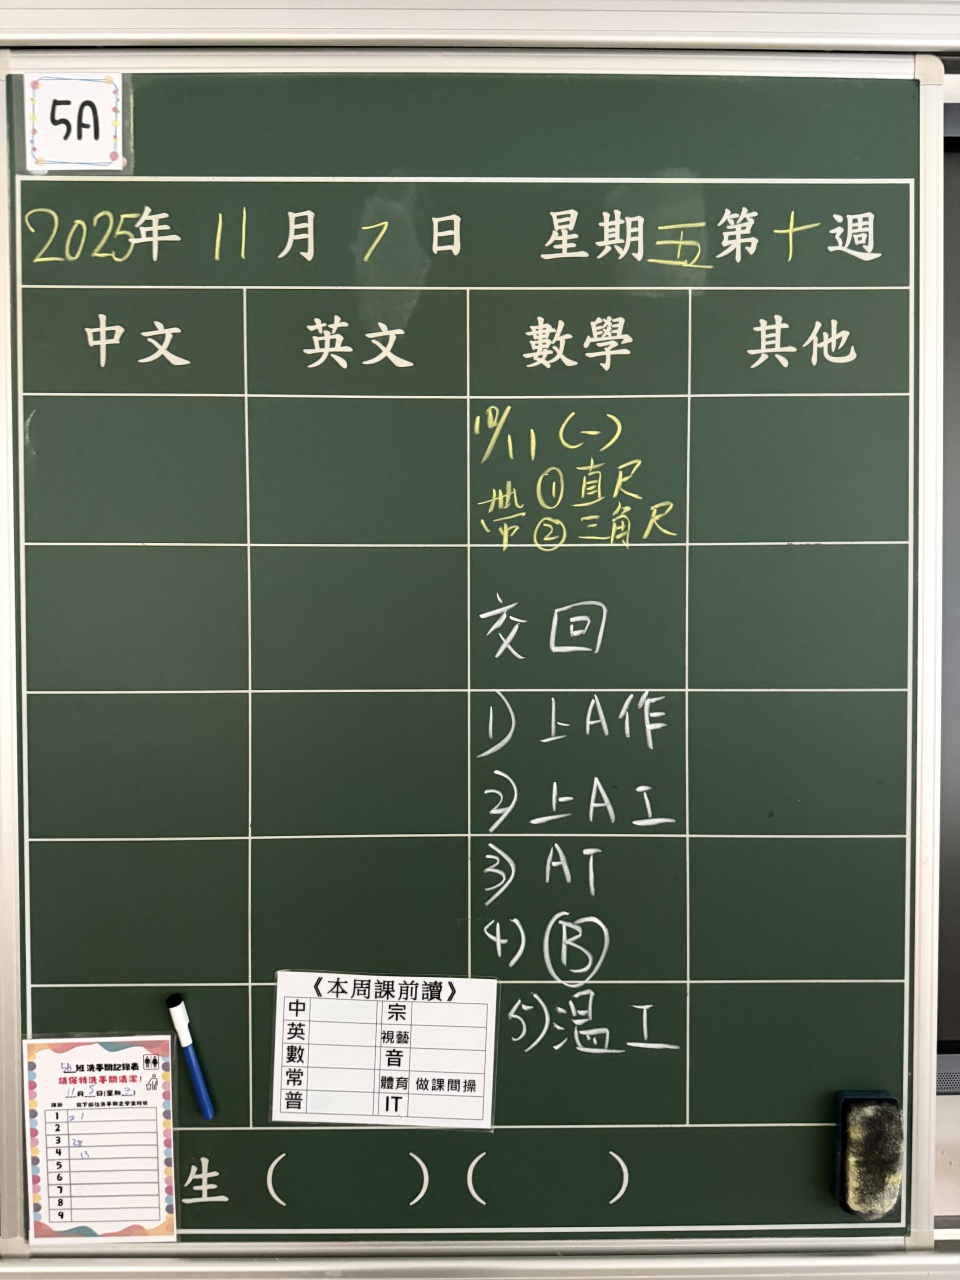 5A
2025年 11月 7日 星期五第十週
中文 英文 數學 其他
10/11 (一)
帶 ① 直尺
② 三角尺
交回
1) 上A作
2) 上A工
3) AT
4) Ⓑ
5) 溫工
《本周課前讀》
中 宗
英 視藝
數 音
常 體育 做課間操
普 IT
5A班洗手間記錄表
請保持洗手間清潔!
11月5日(星期三)
1
2
3 28
4 13
5
6
7
8
9
生 ( ) ( )